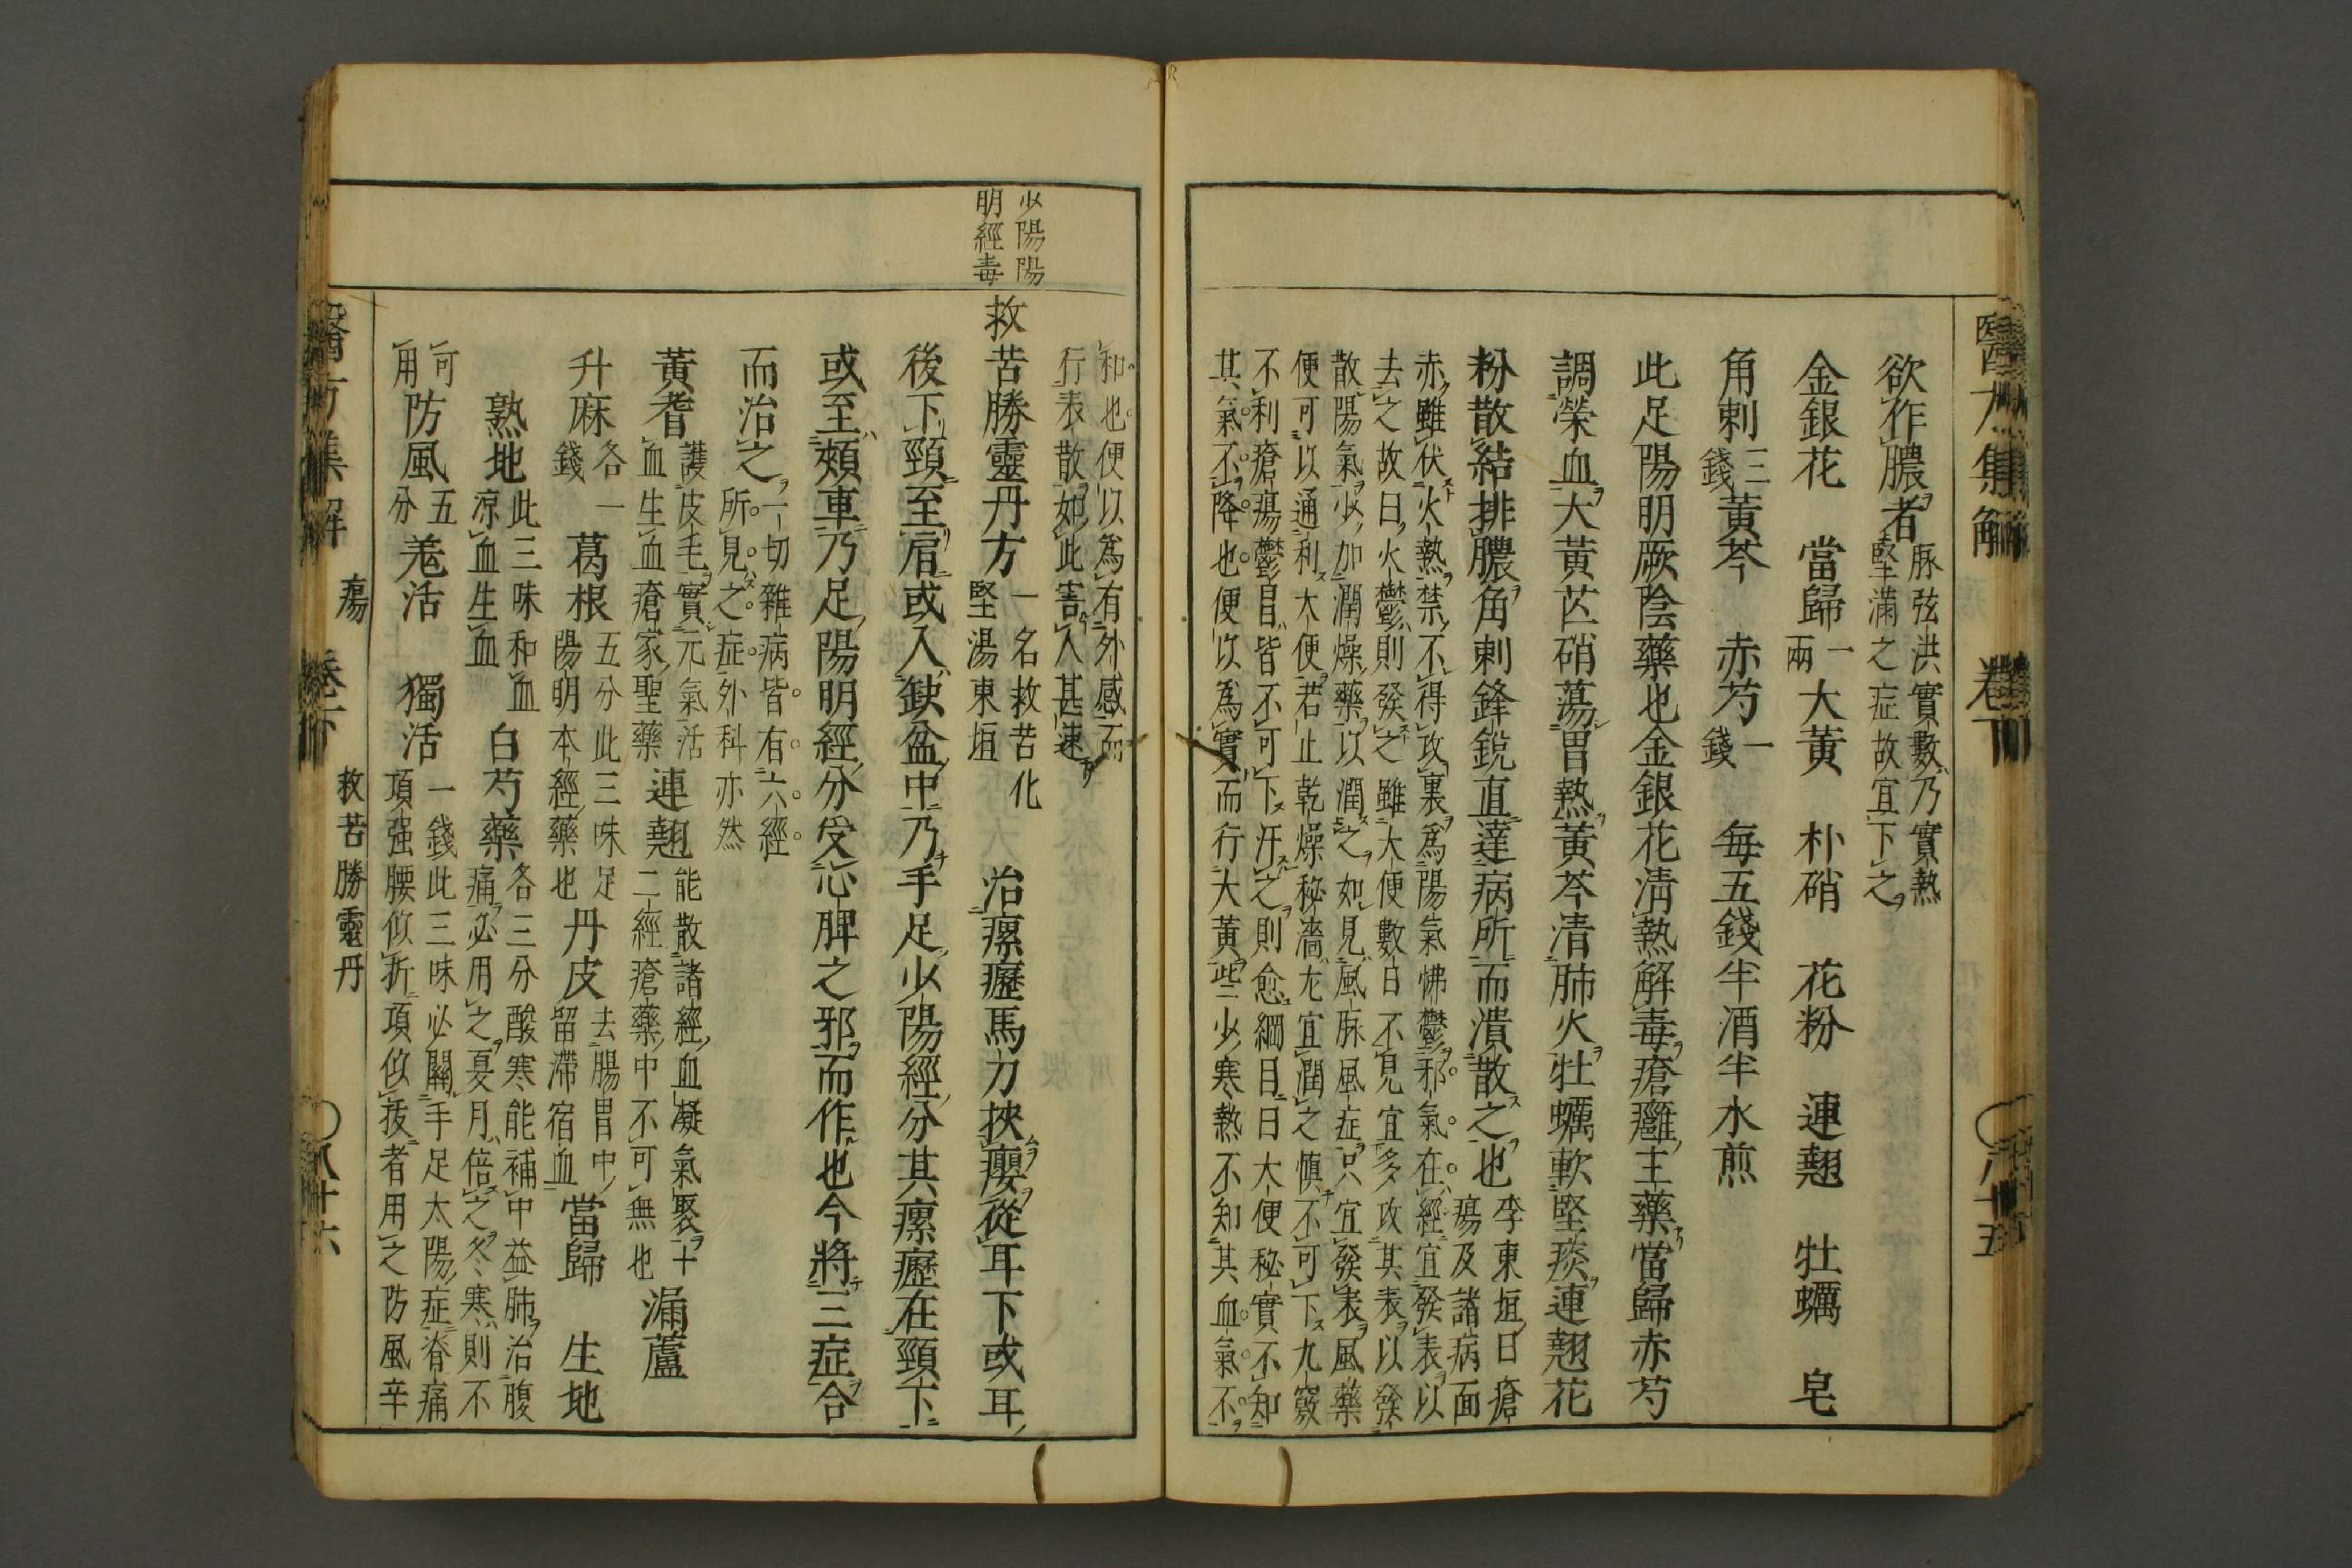 醫方集解 卷下 八十五
欲作膿者脉弦洪實數乃實熱
堅滿之症故宜下之
金銀花 當歸一兩 大黃 朴硝 花粉 連翹 牡蠣 皂
角刺三錢 黃芩 赤芍一錢 每五錢半酒半水煎
此足陽明厥陰藥也金銀花淸熱解毒瘡癰主藥當歸赤芍
調榮血大黃芒硝蕩胃熱黃芩清肺火牡蠣軟堅痰連翹花
粉散結排膿角刺鋒銳直達病所而潰散之也李東垣曰瘡
瘍及諸病面
赤雖伏火熱禁不得攻裏爲陽氣怫鬱邪氣在經宜發表以
去之故曰火鬱則發之雖大便數日不見宜多攻其表以發
散陽氣少加潤燥藥以潤之如見風脉風症只宜發表風藥
便可以通利大便若止乾燥秘濇尤宜潤之慎不可下九竅
不利瘡瘍鬱冒皆不可下汗之則愈綱目曰大便秘實不知
其氣不降也便以爲實而行大黃些少寒熱不知其血氣不
和也便以爲有外感而
行表散如此害人甚速
少陽陽
明經毒
救苦勝靈丹方一名救苦化
堅湯東垣 治瘰癧馬刀挾癭從耳下或耳
後下頸至肩或入缺盆中乃手足少陽經分其瘰癧在頸下
或至頰車乃足陽明經分受心脾之邪而作也今將三症合
而治之一切雜病皆有六經
所見之症外科亦然
黃耆護皮毛實元氣活
血生血瘡家聖藥 連翹能散諸經血凝氣聚十
二經瘡藥中不可無也 漏蘆
升麻各一
錢 葛根五分此三味足
陽明本經藥也 丹皮去腸胃中
留滯宿血 當歸 生地
熟地此三味和血
涼血生血 白芍藥各三分酸寒能補中益肺治腹
痛必用之夏月倍之冬寒則不
可
用 防風五
分 羗活 獨活一錢此三味必關手足太陽症脊痛
項强腰似折項似拔者用之防風辛
醫方集解 瘍 卷下 救苦勝靈丹 八十六